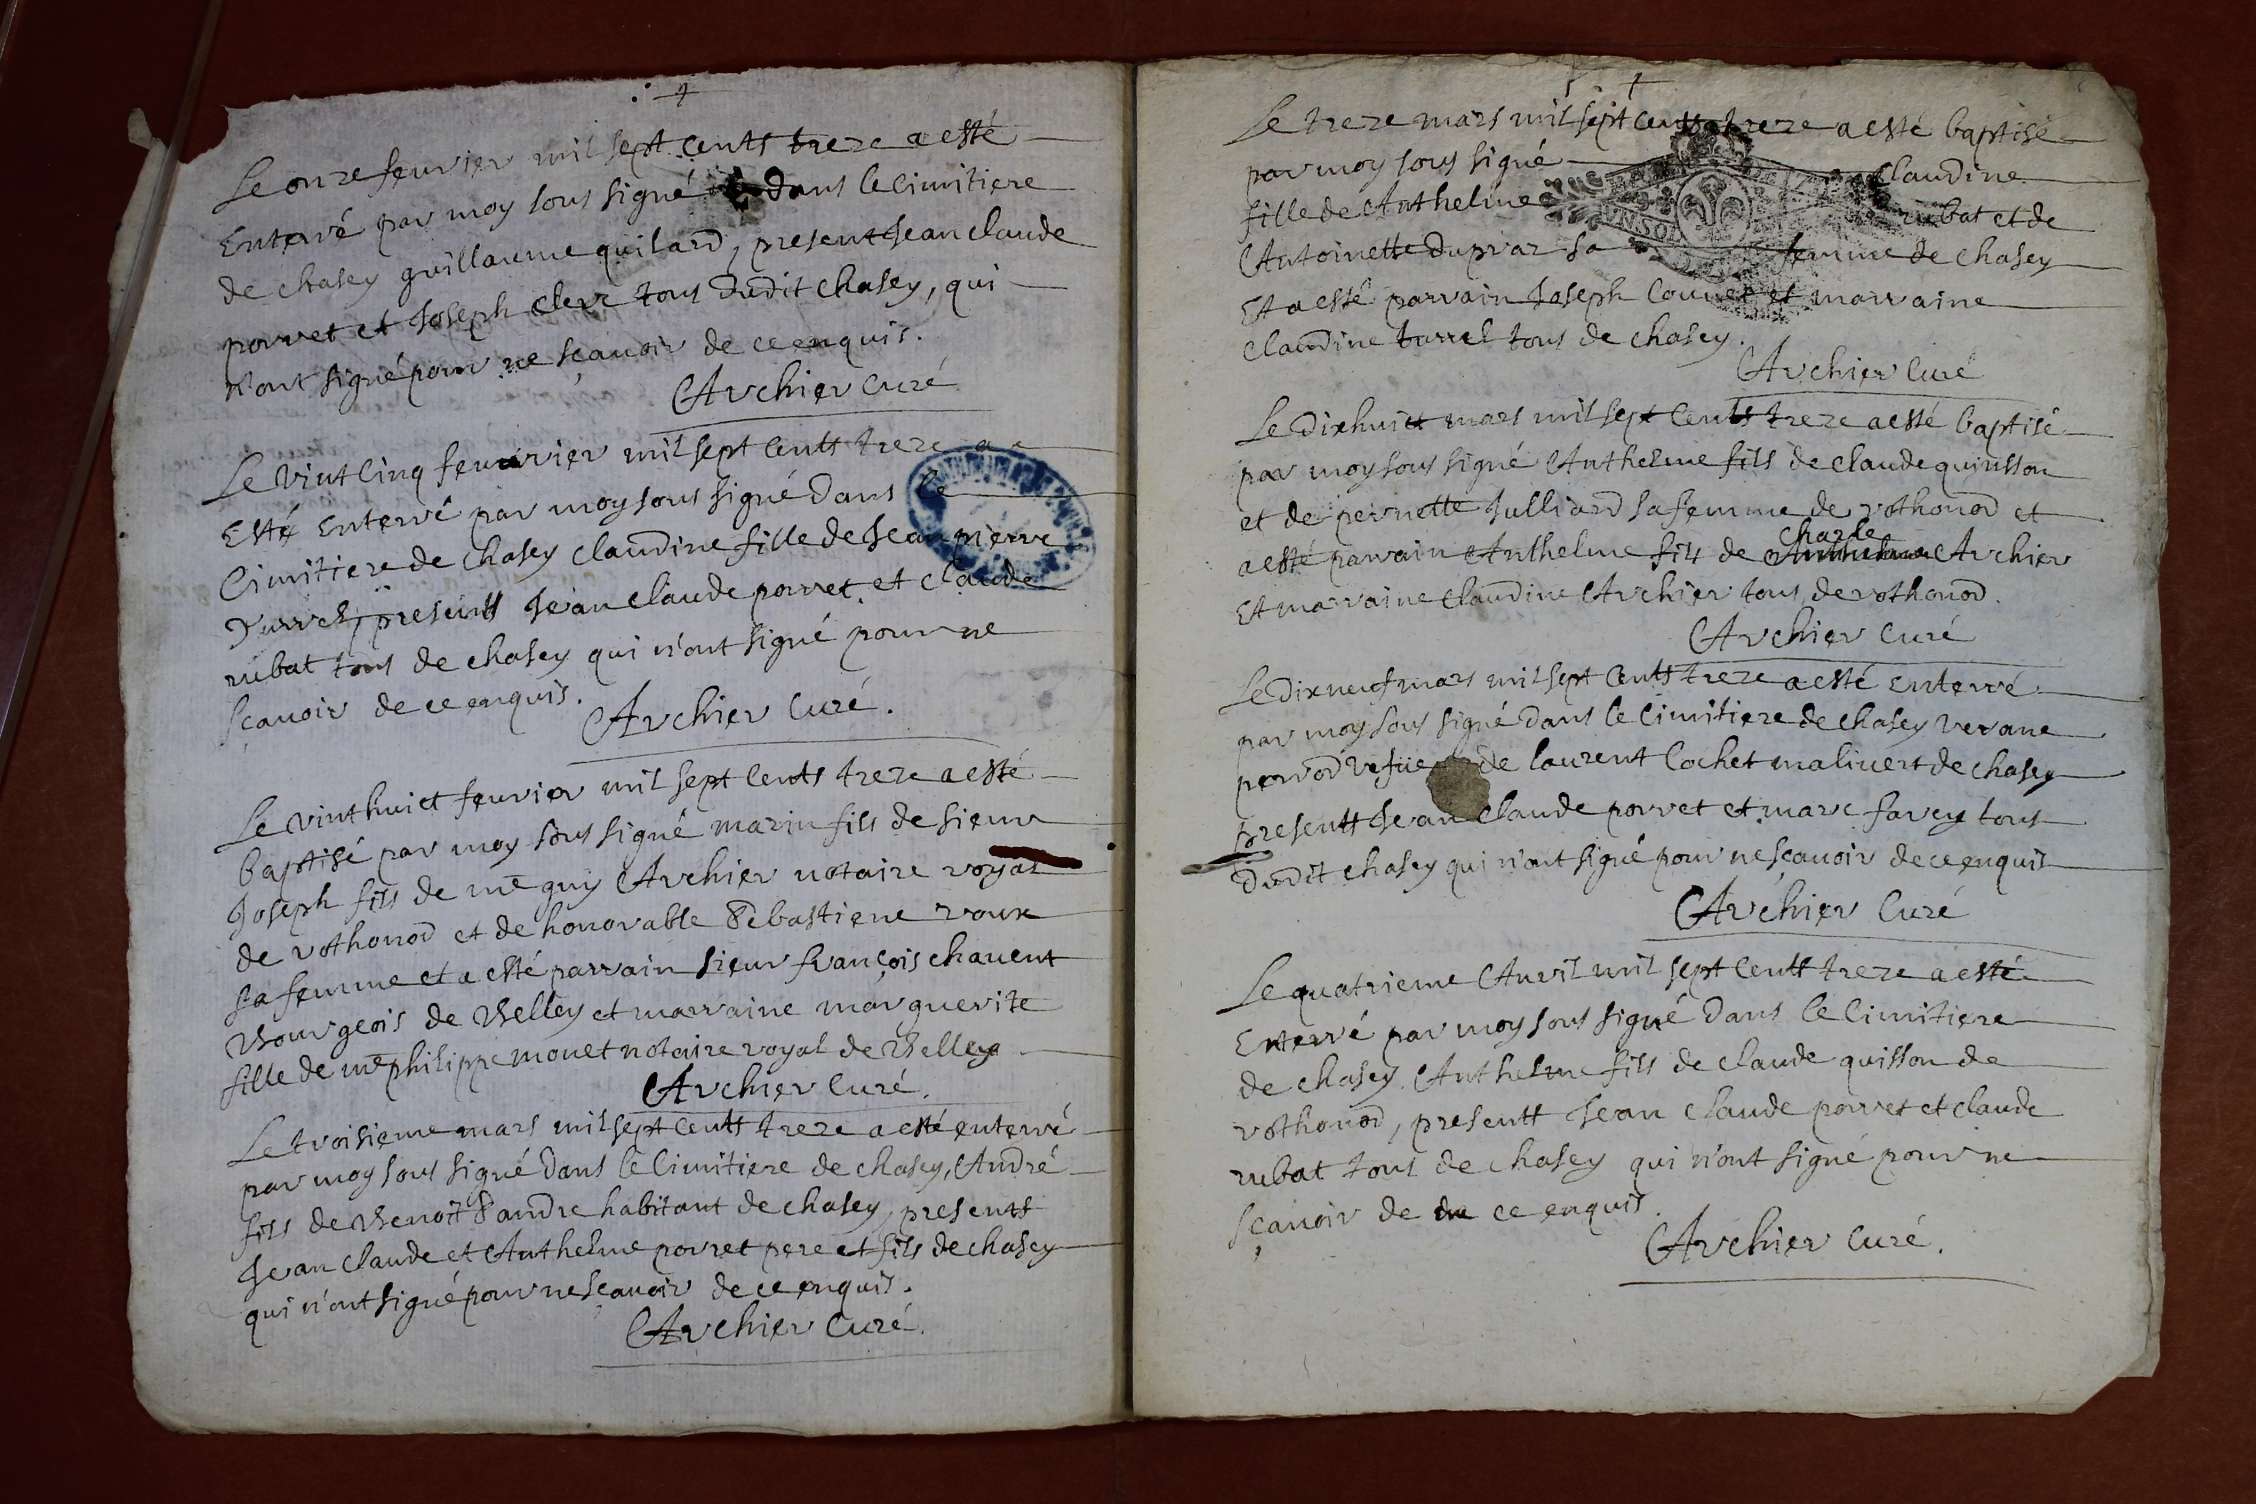 Le onze feuvrier mil sept cents treze a esté
Enterré par moy sous signé dans le cimitiere
de chasey guillaume quilard, present Jean claude
porret et Joseph clerc tous dudit chasey, qui
n'ont signé pour ne sçavoir de ce enquis.
Archier Curé
Le vint cinq feuvrier mil sept centt treze a
Esté Enterré par moy sous signé dans le
Cimitiere de chasey claudine fille de Jean pierre
presentt Jean claude porret et claude
rubat tous de chasey qui n'ont signé pour ne
sçavoir de ce enquis.
Archier Curé.
Le vint huict feuvrier mil sept cents treze a esté
baptisé par moy sous signé marin fils de sieur
Joseph fils de me guy Archier notaire royal
de rothonod et de honorable Sebastiene roux
sa femme et a esté parrain sieur françois chauent
Bourgeois de Belley et marraine marguerite
fille de me philippe monet notaire royal de Belley
Archier Curé.
Le troisieme mars mil sept centt treze a esté enterré
par moy sous signé dans le Cimitiere de chasey, André
fils de Benoit Sandre habitant de chasey, presentt
Jean claude et Anthelme porret pere et fils de chasey
qui n'ont signé pour ne sçavoir de ce enquis.
Archier Curé.
Le treze mars mil sept cents treze a esté baptisé
par moy sous signé Claudine
fille de Anthelme rubat et de
Antoinette dupraz sa femme de chasey
Et a esté parrain Joseph et marraine
claudine tous de chasey.
Archier Curé
Le dixhuict mars mil sept Cents treze a esté baptisé
par moy sous signé Anthelme fils de claude quinsson
et de pernette Julliard sa femme de rothonod et
a esté parrain Anthelme fils de charle Archier
Et marraine claudine Archier tous de rothonod.
Archier Curé
Le dixneuf mars mil sept Centt treze a esté Enterré
par moy sous signé dans le Cimitiere de chasey verane
perrod vefue de laurent Cochet maliuert de chasey
presentt Jean claude porret et marc farey tous
dudit chasey qui n'ont signé pour ne sçavoir de ce enquis
Archier Curé
Le quatrieme Auril mil sept Centt treze a esté
Enterré par moy sous signé dans le Cimitiere
de chasey Anthelme fils de claude quisson de
rothonod, presentt Jean claude porret et claude
rubat tous de chasey qui n'ont signé pour ne
sçavoir de ce enquis.
Archier Curé.